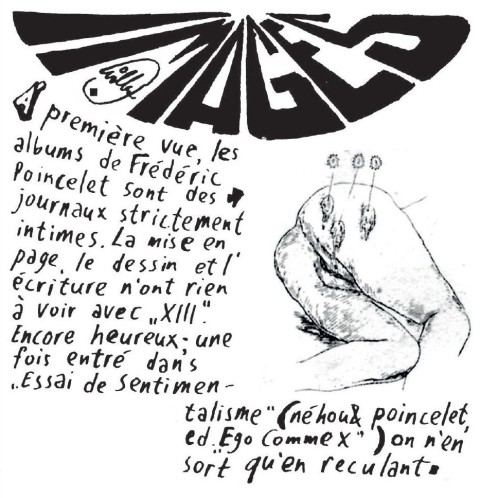 IMAGES
Willem
A première vue, les
albums de Frédéric
Poincelet sont des
journaux strictement
intimes. La mise en
page, le dessin et l'
écriture n'ont rien
à voir avec „XIII".
Encore heureux; une
fois entré dans
„Essai de Sentimen-
talisme" (néhou & poincelet,
ed. „Ego Comme X") on n'en
sort qu'en reculant.